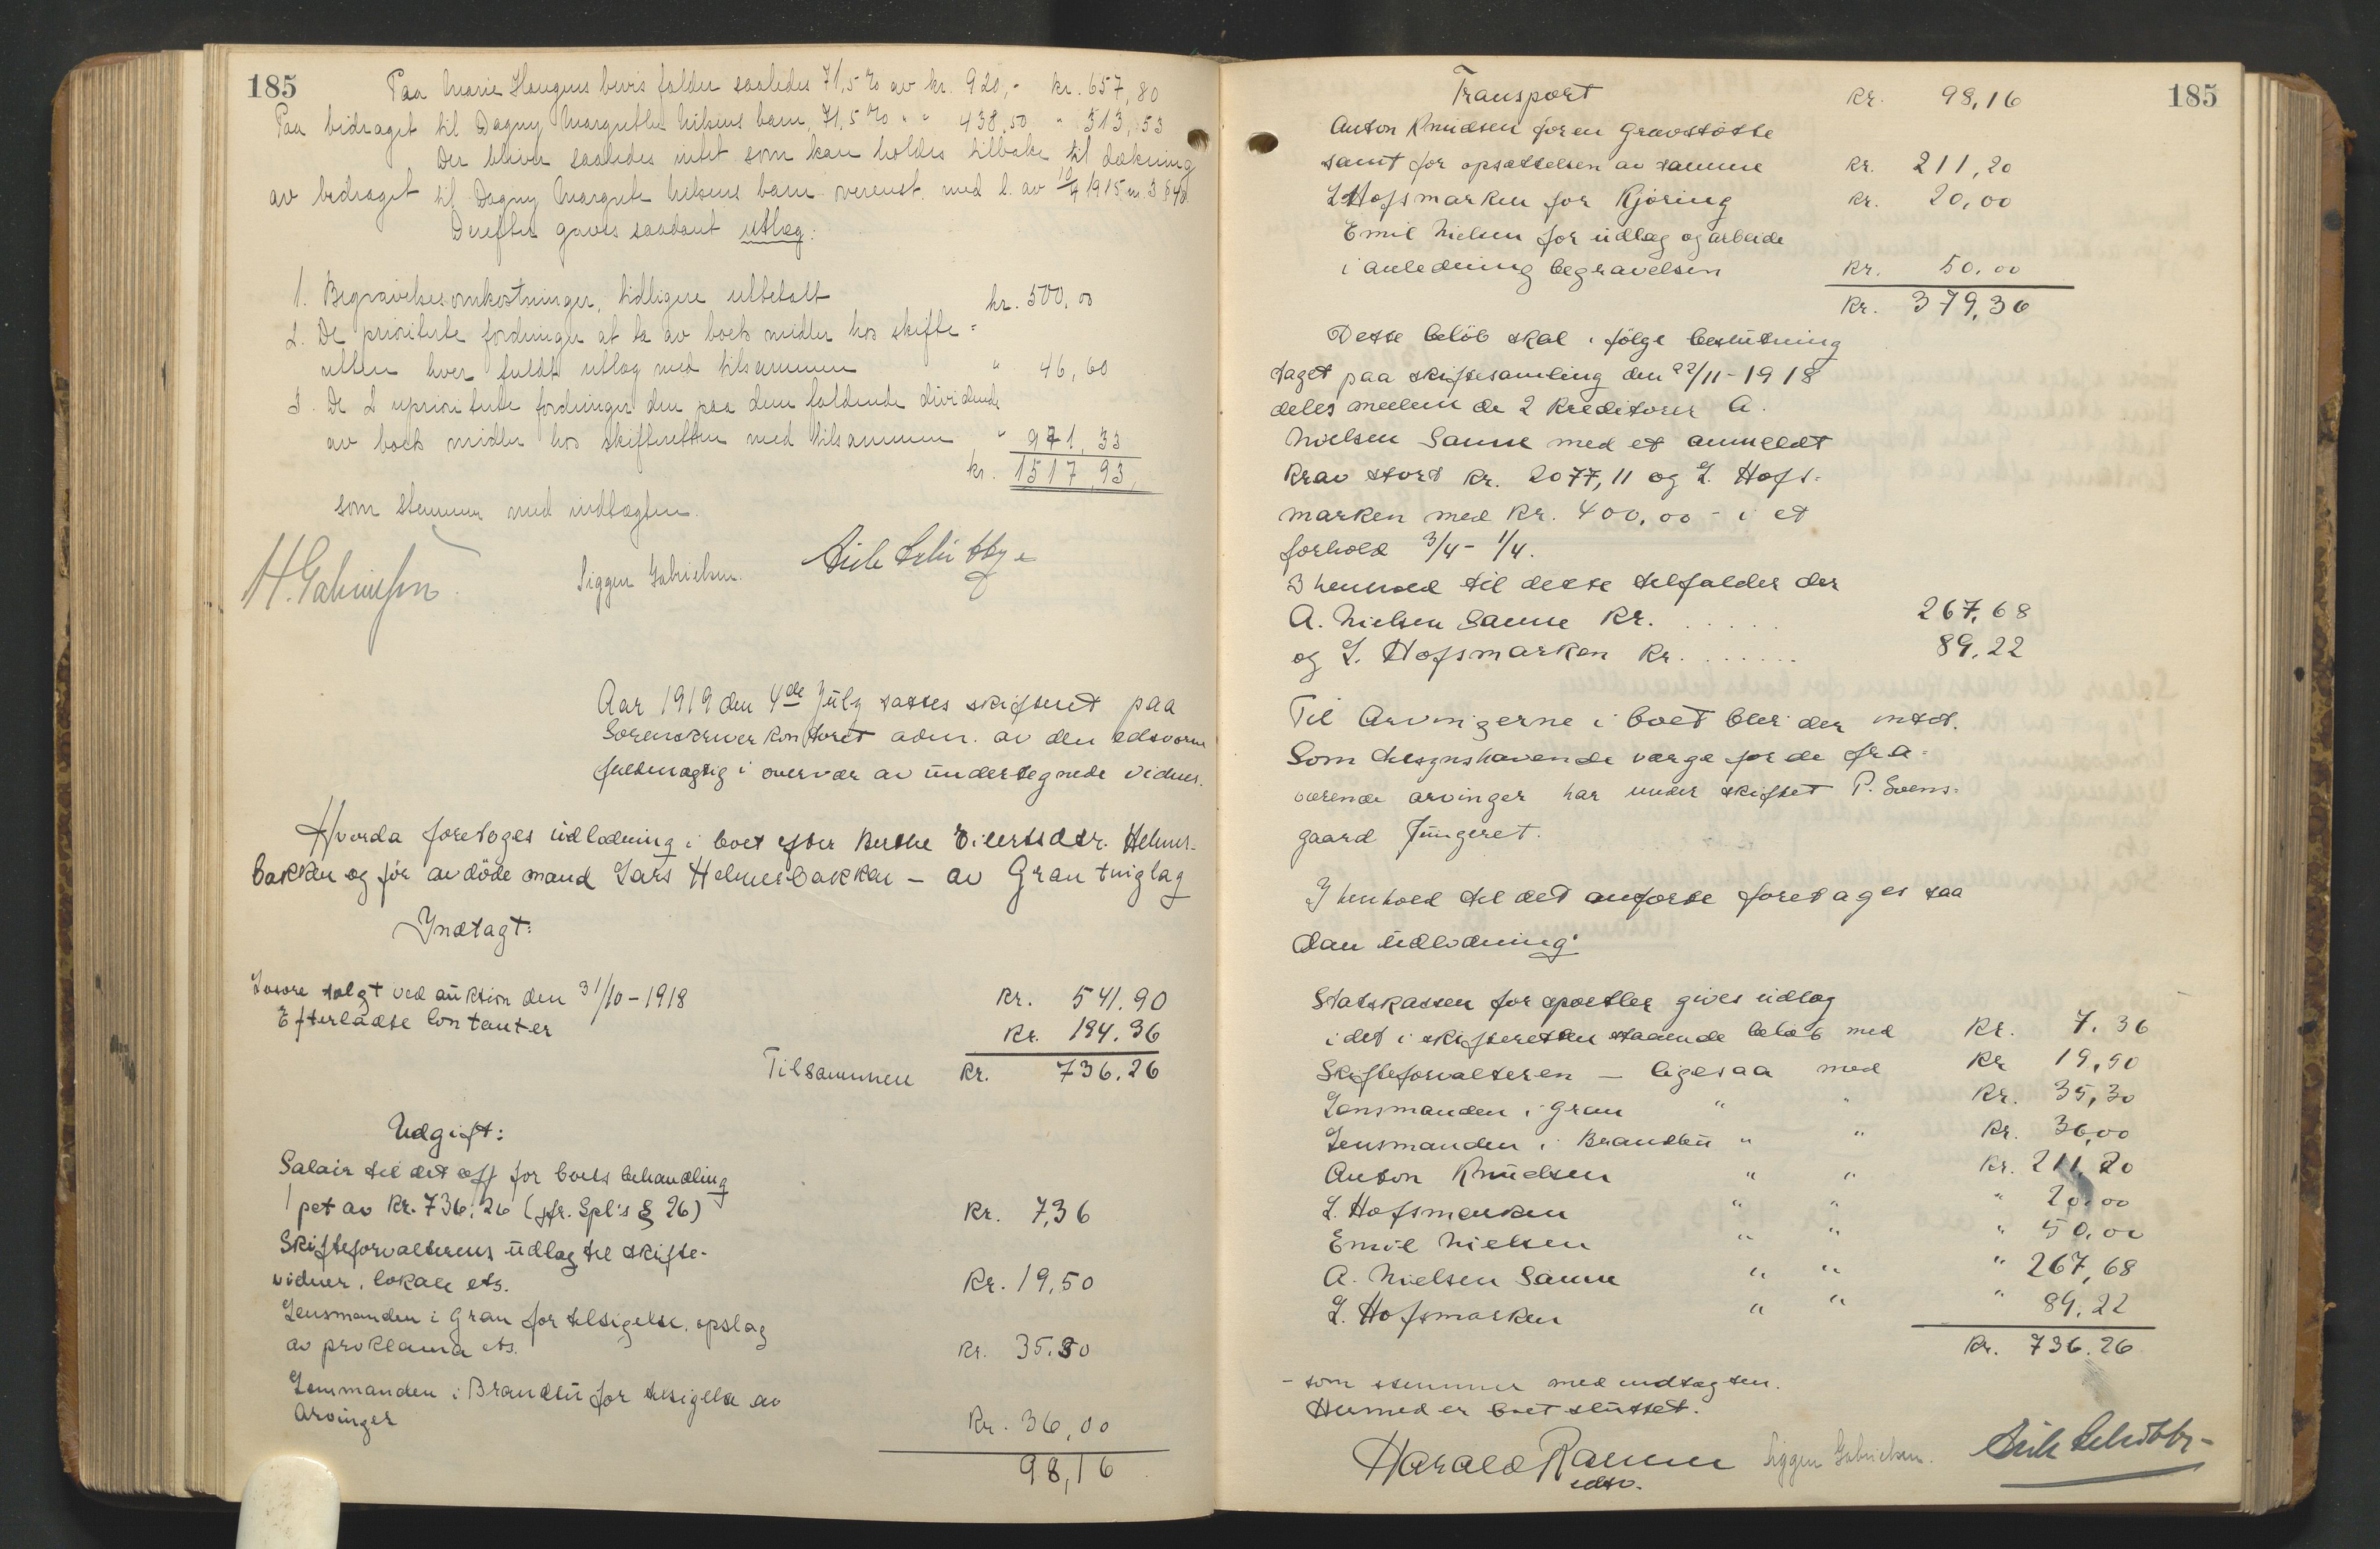 185
Paa Marie Haugens bevis falder saaledes 71,5 % av kr. 920,- kr. 657,80
Paa bidraget til Dagny Margrethe Nilsens barn, 71,5 % " " 438,50 " 313,53
Der bliver saaledes intet som kan holdes tilbake til dækning
av bidraget til Dagny Margrete Nilsens barn overenst. med l. av 10/4 1915 nr. 3 §
Derefter gives saadant utlæg:
1. Begravelsesomkostninger, tidligere utbetalt kr. 500,00
2. De prioriterte fordringer at ta av boets midler hos skifte=
retten hver fuldt utlæg med tilsammen " 46,60
3. De 2 uprioriterte fordringer den paa dem faldende dividende
av boets midler hos skifteretten med tilsammen " 971,33
kr. 1517,93
som stemmer med indtægten.
H. Gabrielsen
Siggen Gabrielsen.
Aar 1919 den 4de July sattes skifteret paa
Sorenskriverkontoret adm. av den edsvorne
fuldmægtig i overvær av undertegnede vidner.
Hvorda foretoges udlodning i boet efter Berthe Eilertsdtr. Helmer-
bakken og før avdöde mand Lars Helmerbakken - av Gran tinglag
Indtægt:
Løsøre solgt ved auktion den 31/10-1918 Kr. 541.90
Efterladte contanter Kr. 194.36
Tilsammen Kr. 736.26
Udgift:
Salair til det off for boets behandling
1 pct av Kr. 736,26 (jfr. Spl's § 26) Kr. 7,36
Skifteforvalterens udlæg til skifte-
vidner, lokale ets. Kr. 19,50
Lensmanden i Gran for tilsigelse, opslag
av proklama ets. Kr. 35.30
Lensmanden i Brandbu for tilsigelse av
arvinger Kr. 36,00
98,16
185
Transport Kr. 98,16
Anton Knudsen for en gravstøtte
samt for opsættelsen av samme Kr. 211,20
L Hofsmarken for Kjøring Kr. 20,00
Emil Nielsen for udlæg og arbeide
i anledning begravelsen Kr. 50.00
Kr. 379,36
Dette belöb skal i følge beslutning
taget paa skiftesamling den 22/11-1918
deles mellem de 2 Kreditorer A.
Nielsen Sanne med et anmeldt
Krav stort Kr. 2077,11 og L. Hofs-
marken med Kr. 400,00 - i et
forhold 3/4 - 1/4.
I henhold til dette tilfalder der
A. Nielsen Sanne Kr. . . . . . 267,68
og L. Hofsmarken Kr. . . . . . . 89.22
Til arvingerne i boet blir der intet.
Som tilsynshavende værge for de fra-
værende arvinger har under skiftet P. Svens-
gaard fungeret.
I henhold til det anförte foretages saa
dan udlodning:
Statskassen for sportler gives udlæg
i det i skifteretten staaende beløb med Kr. 7.36
Skifteforvalteren - ligesaa med Kr 19,50
Lensmanden i Gran " " Kr. 35,30
Lensmanden i Brandbu " " Kr. 36,00
Anton Knudsen " " Kr. 211,20
L. Hofsmarken " " " 20.00
Emil Nielsen " " " 50.00
A. Nielsen Sanne " " " 267,68
L. Hofsmarken " " " 89.22
Kr. 736.26
- som stemmer med indtægten.
Hermed er boet sluttet.
Harald Ramm
edsv.
Siggen Gabrielsen.